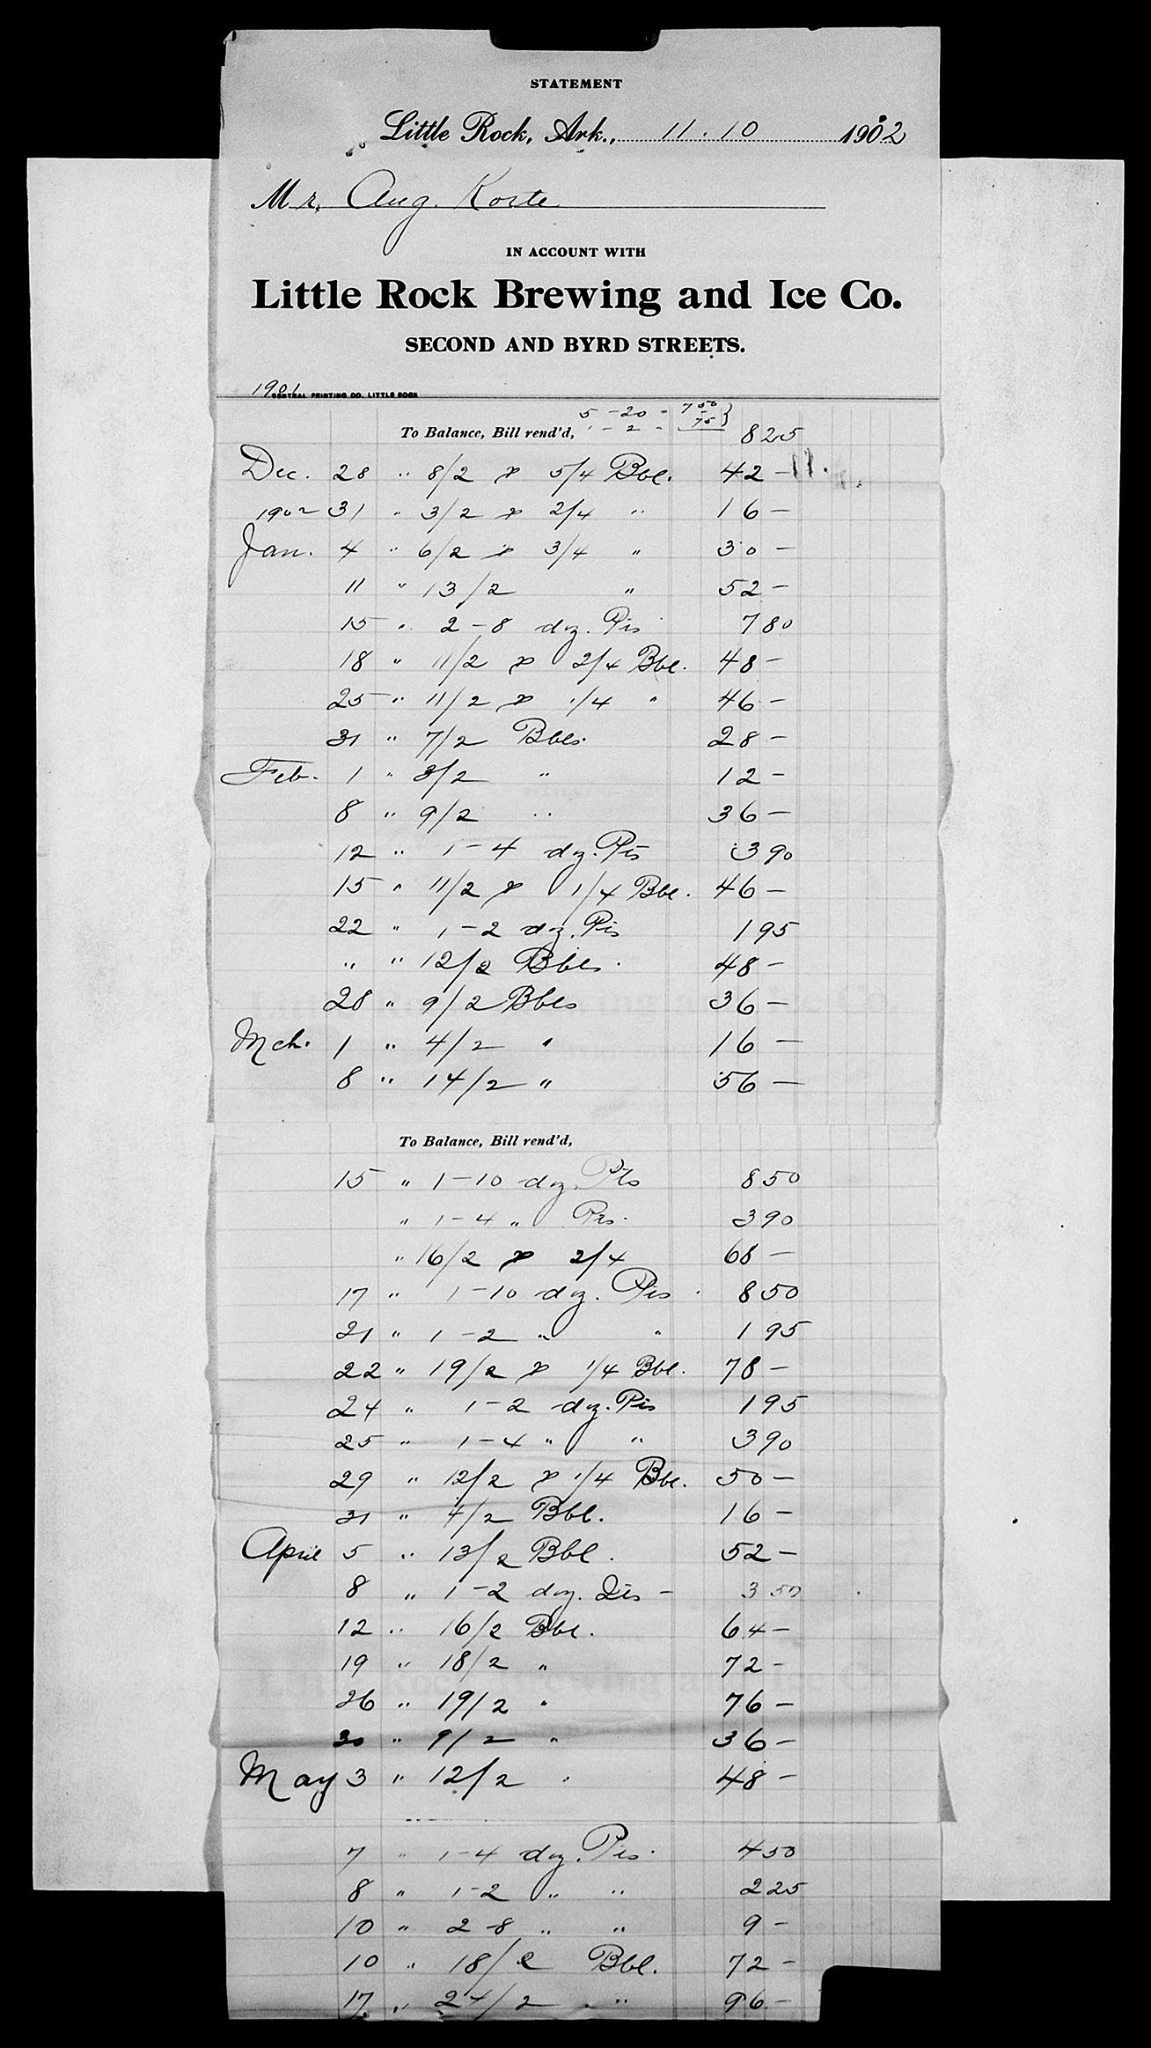 STATEMENT
Little Rock, Ark., 11.10 1902
Mr. Aug. Korte
IN ACCOUNT WITH
Little Rock Brewing and Ice Co.
SECOND AND BYRD STREETS.
1901
CENTRAL PRINTING CO. LITTLE ROCK
5 - 20 - 7 50
To Balance, Bill rend'd, 1 - 2 - 75 } 8 25
Dec. 28 " 8/2 & 5/4 Bbl. 42 -
1902 31 " 3/2 & 2/4 " 16 -
Jan. 4 " 6/2 & 3/4 " 30 -
11 " 13/2 " 52 -
15 " 2-8 dz. Pts 7 80
18 " 11/2 & 2/4 Bbl. 48 -
25 " 11/2 & 1/4 " 46 -
31 " 7/2 Bbls. 28 -
Feb. 1 " 3/2 " 12 -
8 " 9/2 " 36 -
12 " 1-4 dz. Pts 3 90
15 " 11/2 & 1/4 Bbl. 46 -
22 " 1-2 dz. Pts 1 95
" " 12/2 Bbls. 48 -
28 " 9/2 Bbls 36 -
Mch. 1 " 4/2 " 16 -
8 " 14/2 " 56 -
To Balance, Bill rend'd,
15 " 1-10 dz. Pts 8 50
" 1-4 " Pts. 3 90
" 16/2 & 2/4 68 -
17 " 1-10 dz. Pts. 8 50
21 " 1-2 " " 1 95
22 " 19/2 & 1/4 Bbl. 78 -
24 " 1-2 dz. Pts 1 95
25 " 1-4 " " 3 90
29 " 12/2 & 1/4 Bbl. 50 -
31 " 4/2 Bbl. 16 -
April 5 " 13/2 Bbl. 52 -
8 " 1-2 doz. Qts - 3 50
12 " 16/2 Bbl. 64 -
19 " 18/2 " 72 -
26 " 19/2 " 76 -
30 " 9/2 " 36 -
May 3 " 12/2 " 48 -
7 " 1-4 dz. Pts. 4 50
8 " 1-2 " " 2 25
10 " 2-8 " " 9 -
10 " 18/2 Bbl. 72 -
17 " 24/2 " 96 -